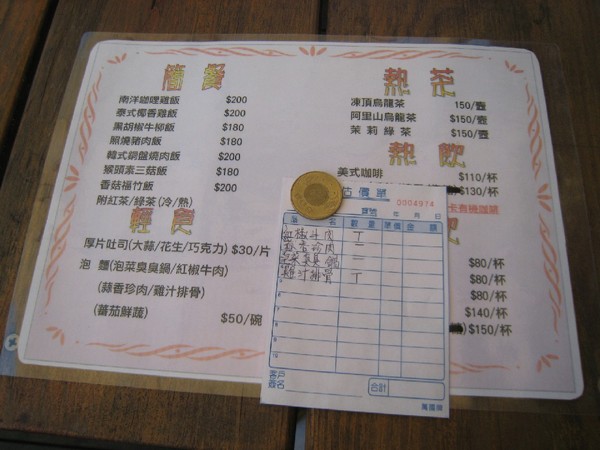 簡餐
南洋咖哩雞飯 $200
泰式椰香雞飯 $200
黑胡椒牛柳飯 $180
照燒豬肉飯 $180
韓式銅盤燒肉飯 $200
猴頭素三菇飯 $180
香菇福竹飯 $200
附紅茶/綠茶(冷/熱)
輕食
厚片吐司(大蒜/花生/巧克力) $30/片
泡麵(泡菜臭臭鍋/紅椒牛肉)
(蒜香珍肉/雞汁排骨)
(蕃茄鮮蔬) $50/碗
熱茶
凍頂烏龍茶 150/壺
阿里山烏龍茶 $150/壺
茉莉綠茶 $150/壺
熱飲
美式咖啡 $110/杯
$130/杯
卡有機咖啡
$80/杯
$80/杯
$80/杯
$140/杯
$150/杯
估價單
0004974
號 年 月 日
品名 數量 單價 金額
紅椒牛肉 一
蒜香珍肉 二
泡菜臭臭鍋 一
雞汁排骨 一
客戶簽名
合計
萬國牌